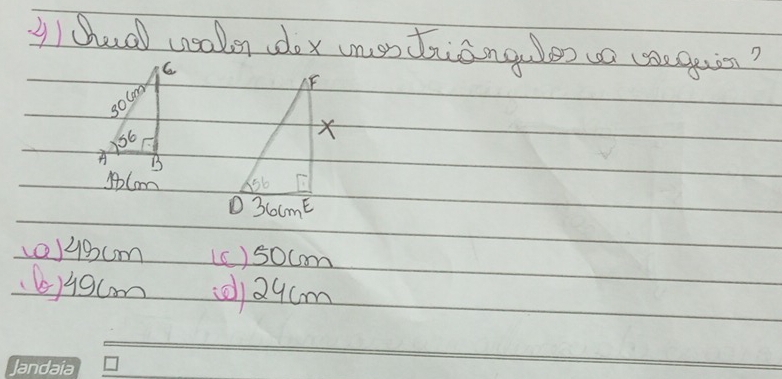 4) Qual valor de x nos triângulos a seguir?
C
30cm
56
A B
18cm
F
X
56
D 36cm E
a) 48cm c) 50cm
b) 49cm d) 24cm
Jandaia